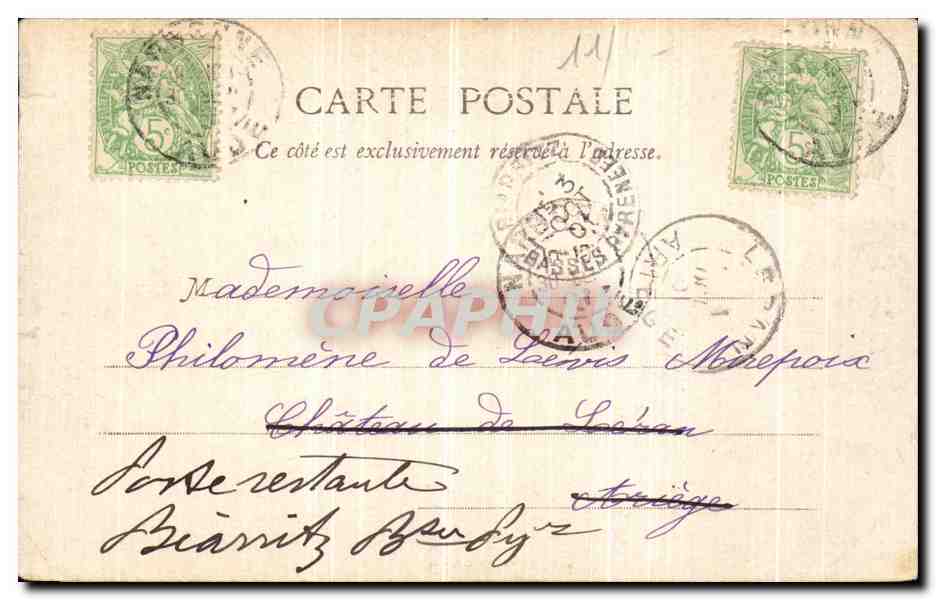 11/-
CARTE POSTALE
Ce côté est exclusivement réservé à l'adresse.
5c
POSTES
5c
POSTES
NARBONNE
AUDE
BASSES PYRENEES
ARIEGE
CPAPHIL
Mademoiselle
Philomène de Loewis Mirepoix
Château de Léran
Ariège
Poste restante
Biarritz Bses Pyr